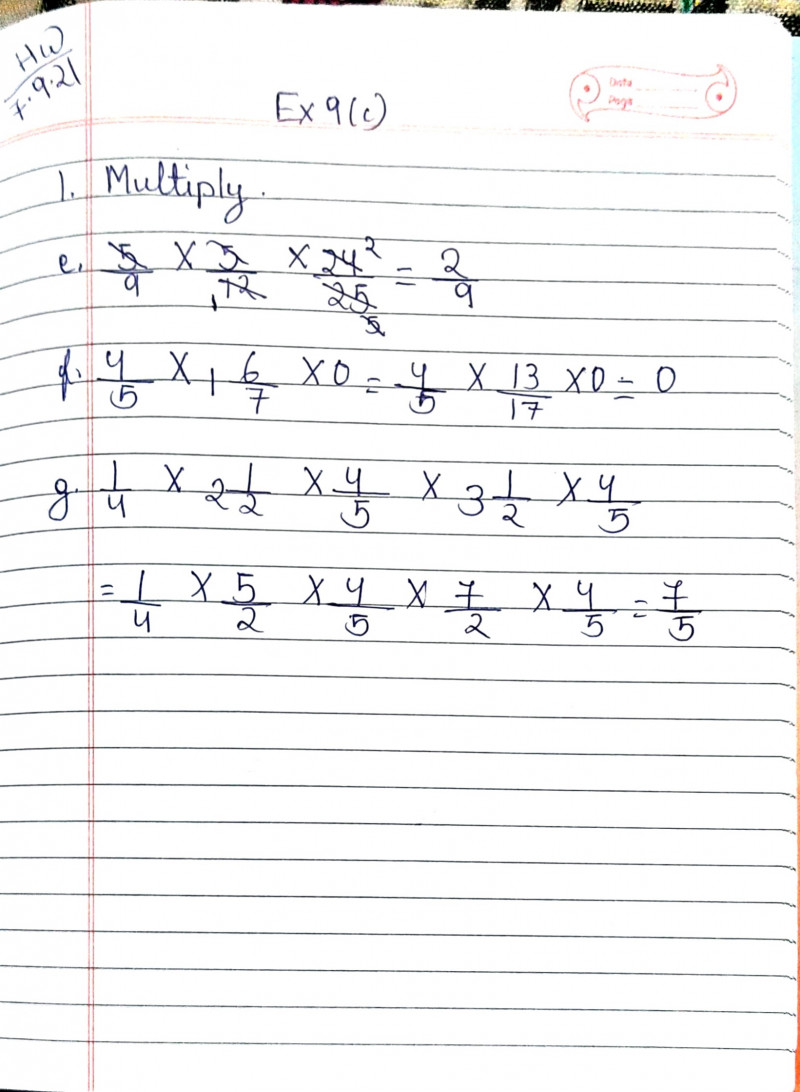 HW
7.9.21
Date
Page
Ex 9(c)
1. Multiply.
e. 5/9 X 5/12 1 X 24/25 2 5 = 2/9
f. 4/5 X 1 6/7 X 0 = 4/5 X 13/17 X 0 = 0
g. 1/4 X 2 1/2 X 4/5 X 3 1/2 X 4/5
= 1/4 X 5/2 X 4/5 X 7/2 X 4/5 = 7/5